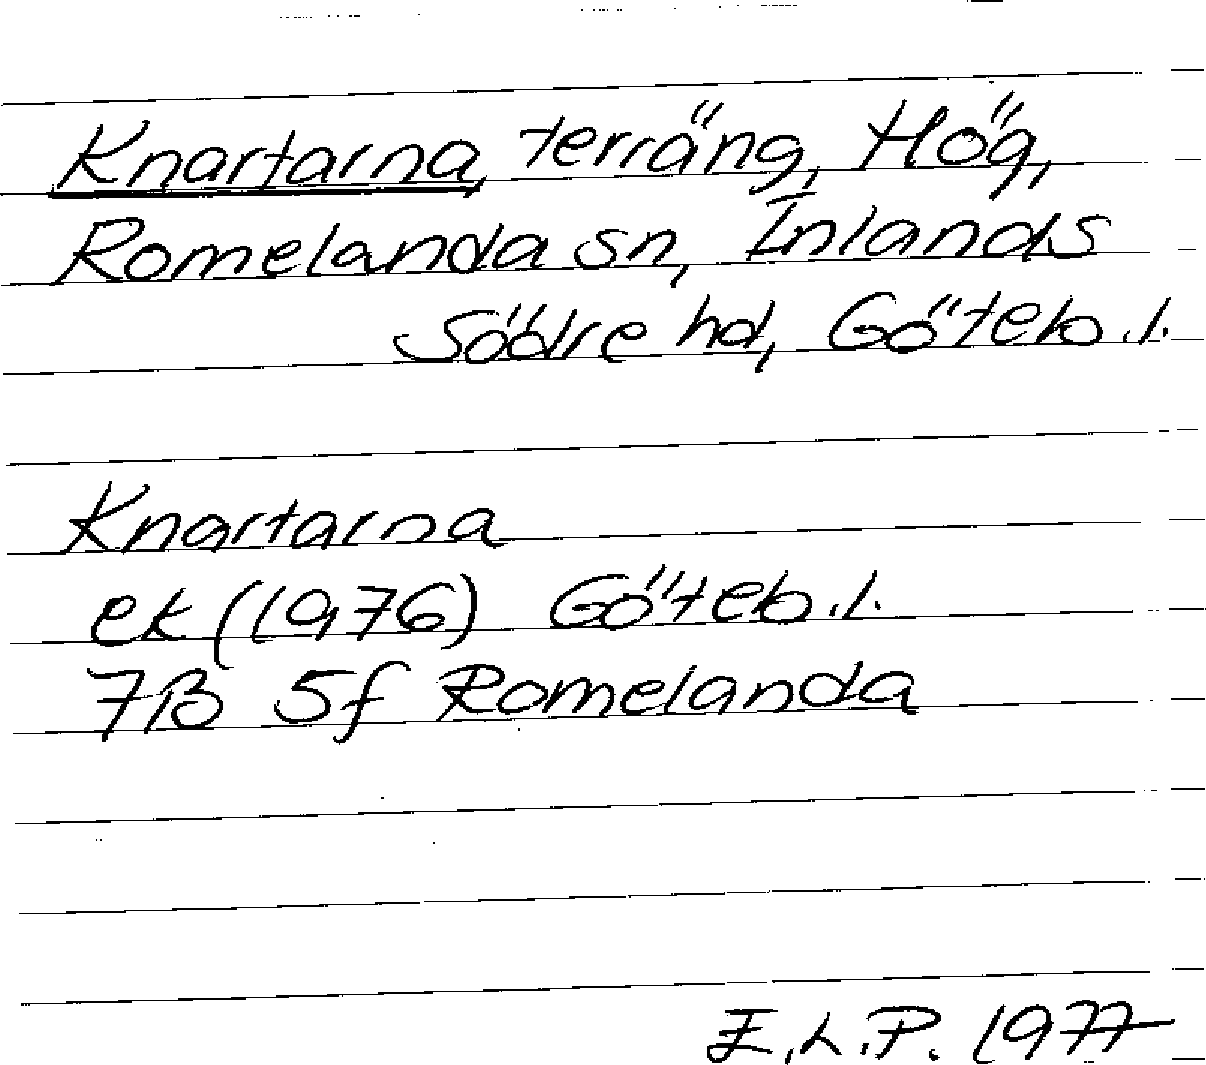 Knartarna, terräng, Hög,
Romelanda sn, Inlands
Södre hd, Göteb.l.
Knartarna
ek (1976) Göteb.l.
7B 5f Romelanda
E.L.P. 1977